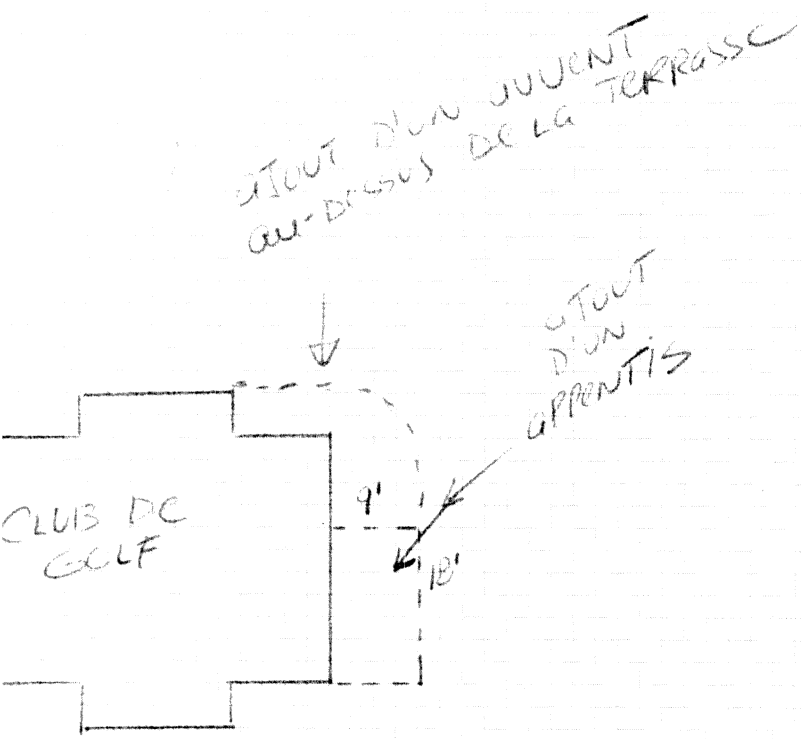 AJOUT D'UN AUVENT
AU-DESSUS DE LA TERRASSE
AJOUT
D'UN
APPENTIS
9'
CLUB DE
GOLF
18'